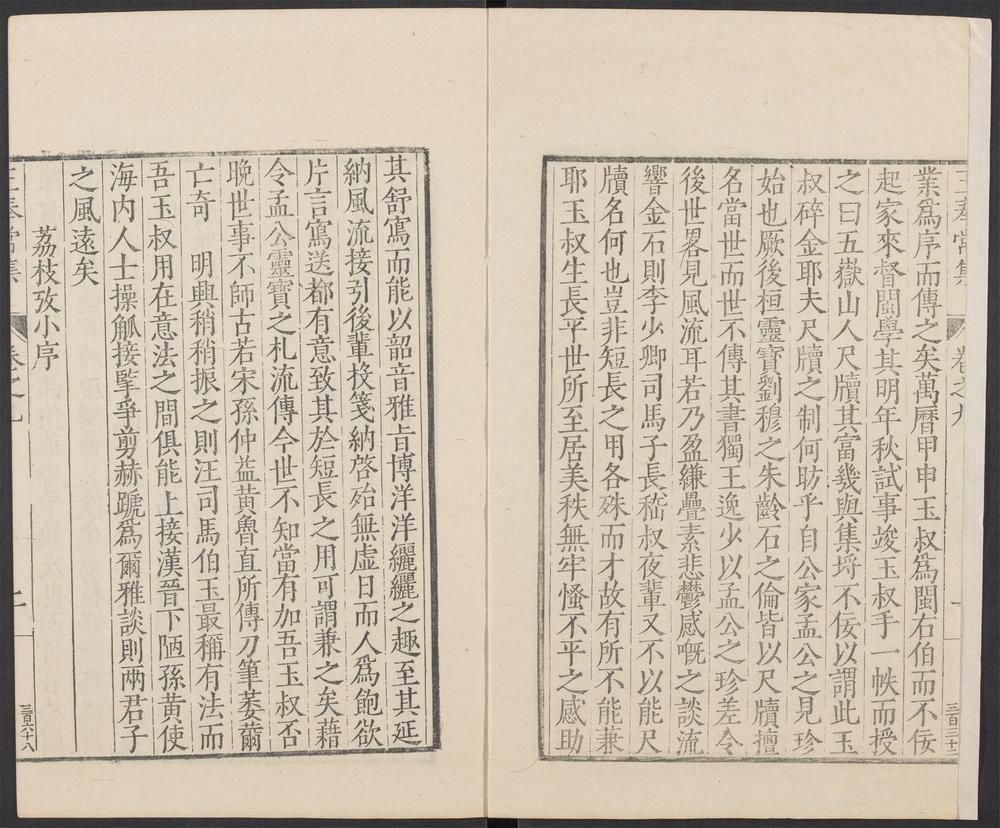 王奉常集 卷之九 一 三百三十二
業爲序而傳之矣萬曆甲申玉叔爲閩右伯而不佞
起家來督閩學其明年秋試事竣玉叔手一帙而授
之曰五嶽山人尺牘其富幾與集埒不佞以謂此玉
叔碎金耶夫尺牘之制何昉乎自公家孟公之見珍
始也厥後桓靈寶劉穆之朱齡石之倫皆以尺牘擅
名當世而世不傳其書獨王逸少以孟公之珍差令
後世畧見風流耳若乃盈縑疊素悲鬱感嘅之談流
響金石則李少卿司馬子長嵇叔夜輩又不以能尺
牘名何也豈非短長之用各殊而才故有所不能兼
耶玉叔生長平世所至居美秩無牢慅不平之感助
其舒寫而能以韶音雅旨博洋洋纚纚之趣至其延
納風流接引後輩投箋納啓殆無虛日而人爲飽欲
片言寫送都有意致其於短長之用可謂兼之矣藉
令孟公靈寶之札流傳今世不知當有加吾玉叔否
晚世事不師古若宋孫仲益黃魯直所傳刀筆萎薾
亡奇 明興稍稍振之則汪司馬伯玉最稱有法而
吾玉叔用在意法之間俱能上接漢晉下陋孫黃使
海内人士操觚接擥爭剪赫蹏爲爾雅談則兩君子
之風遠矣
荔枝攷小序
王奉常集 卷之九 二 三百六十八